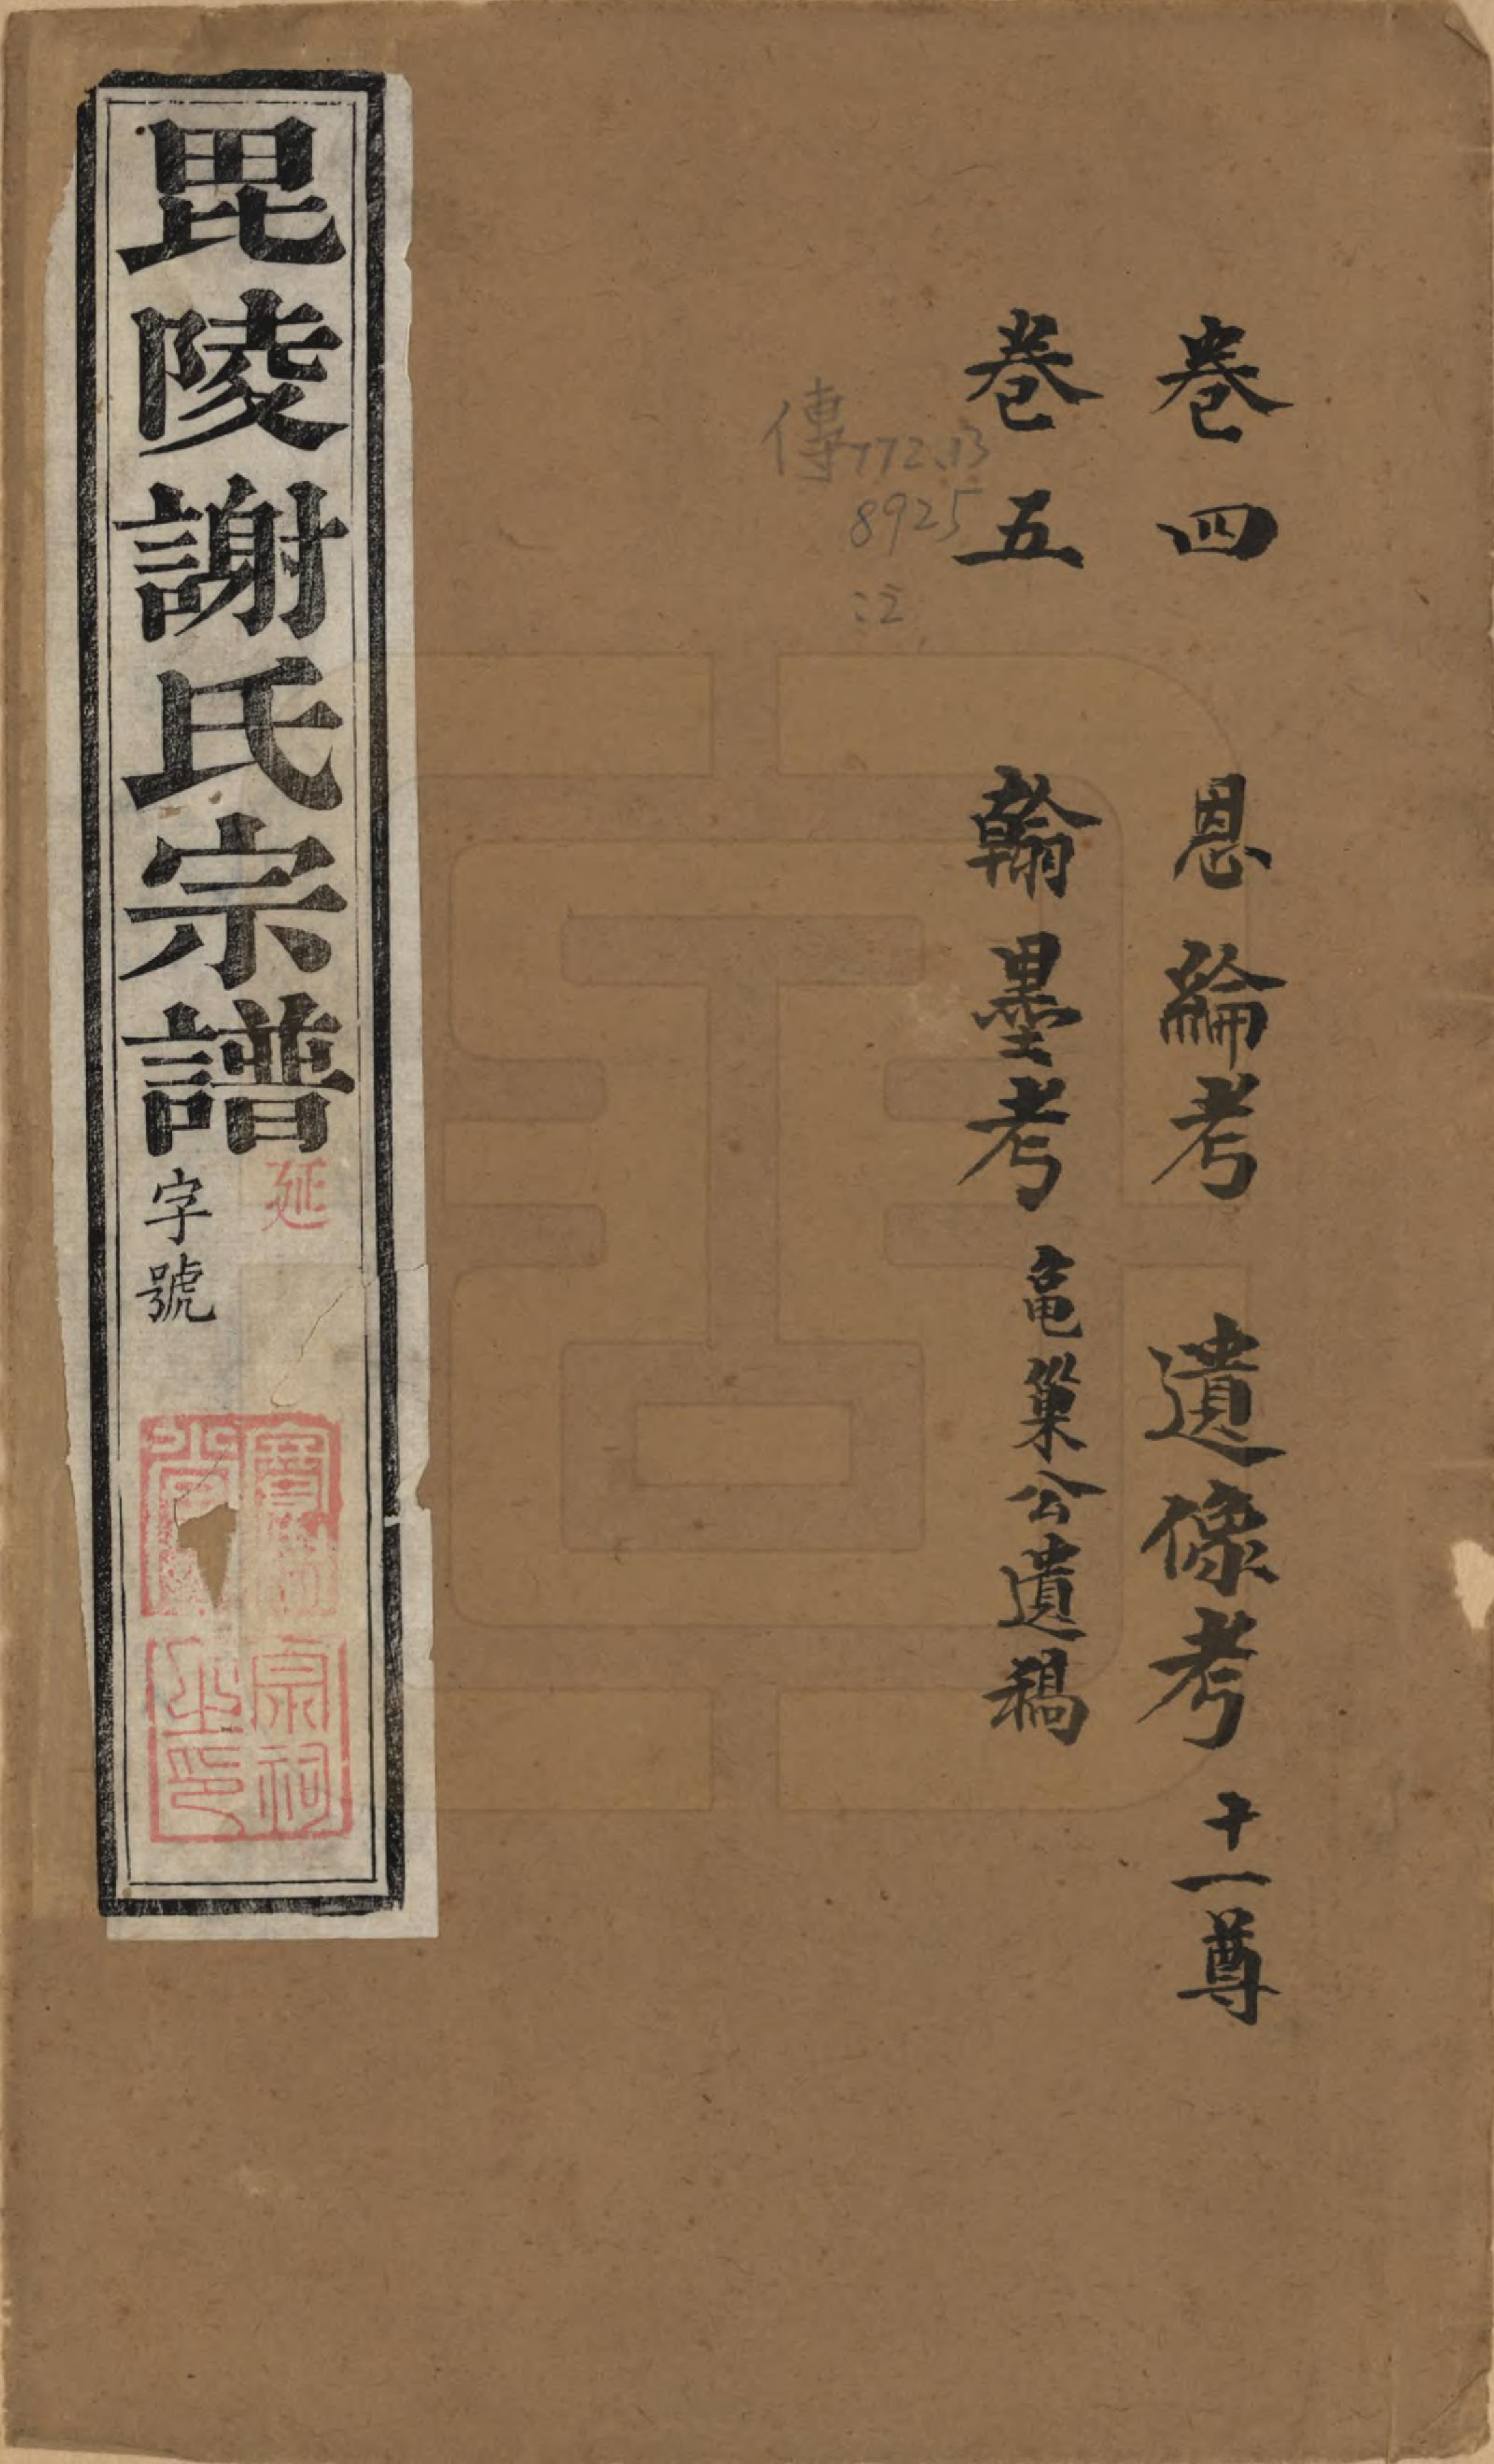 卷四　恩綸考　遺像考　十一尊
卷五　翰墨考　龜巢公遺稿
傳772.13
8925
:2
毘陵謝氏宗譜
延
字號
宗祠之印